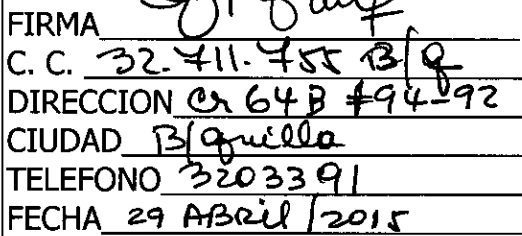 FIRMA
C. C. 32.711.755 B/q
DIRECCION Cr 64B #94-92
CIUDAD B/quilla
TELEFONO 3203391
FECHA 29 ABRil /2015